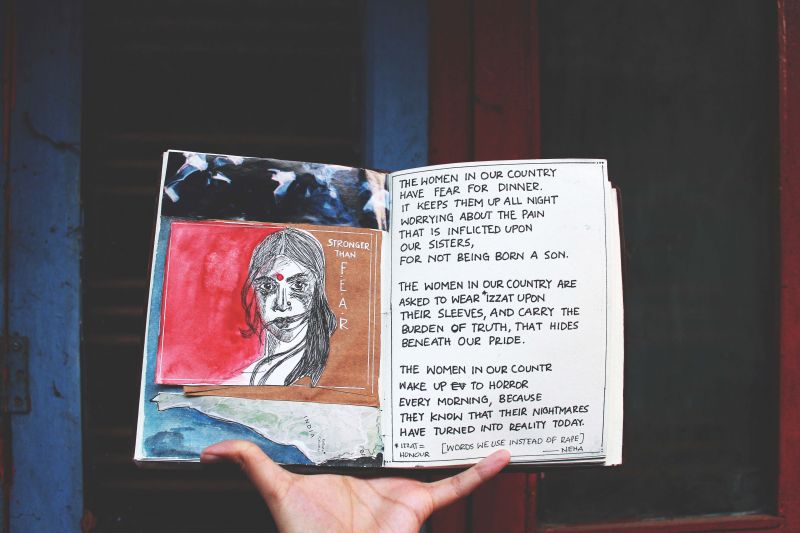 STRONGER
THAN
FEAR
INDIA
THE WOMEN IN OUR COUNTRY
HAVE FEAR FOR DINNER.
IT KEEPS THEM UP ALL NIGHT
WORRYING ABOUT THE PAIN
THAT IS INFLICTED UPON
OUR SISTERS,
FOR NOT BEING BORN A SON.
THE WOMEN IN OUR COUNTRY ARE
ASKED TO WEAR *IZZAT UPON
THEIR SLEEVES, AND CARRY THE
BURDEN OF TRUTH, THAT HIDES
BENEATH OUR PRIDE.
THE WOMEN IN OUR COUNTR
WAKE UP TO HORROR
EVERY MORNING, BECAUSE
THEY KNOW THAT THEIR NIGHTMARES
HAVE TURNED INTO REALITY TODAY.
* IZZAT =
HONOUR
[WORDS WE USE INSTEAD OF RAPE]
— NEHA